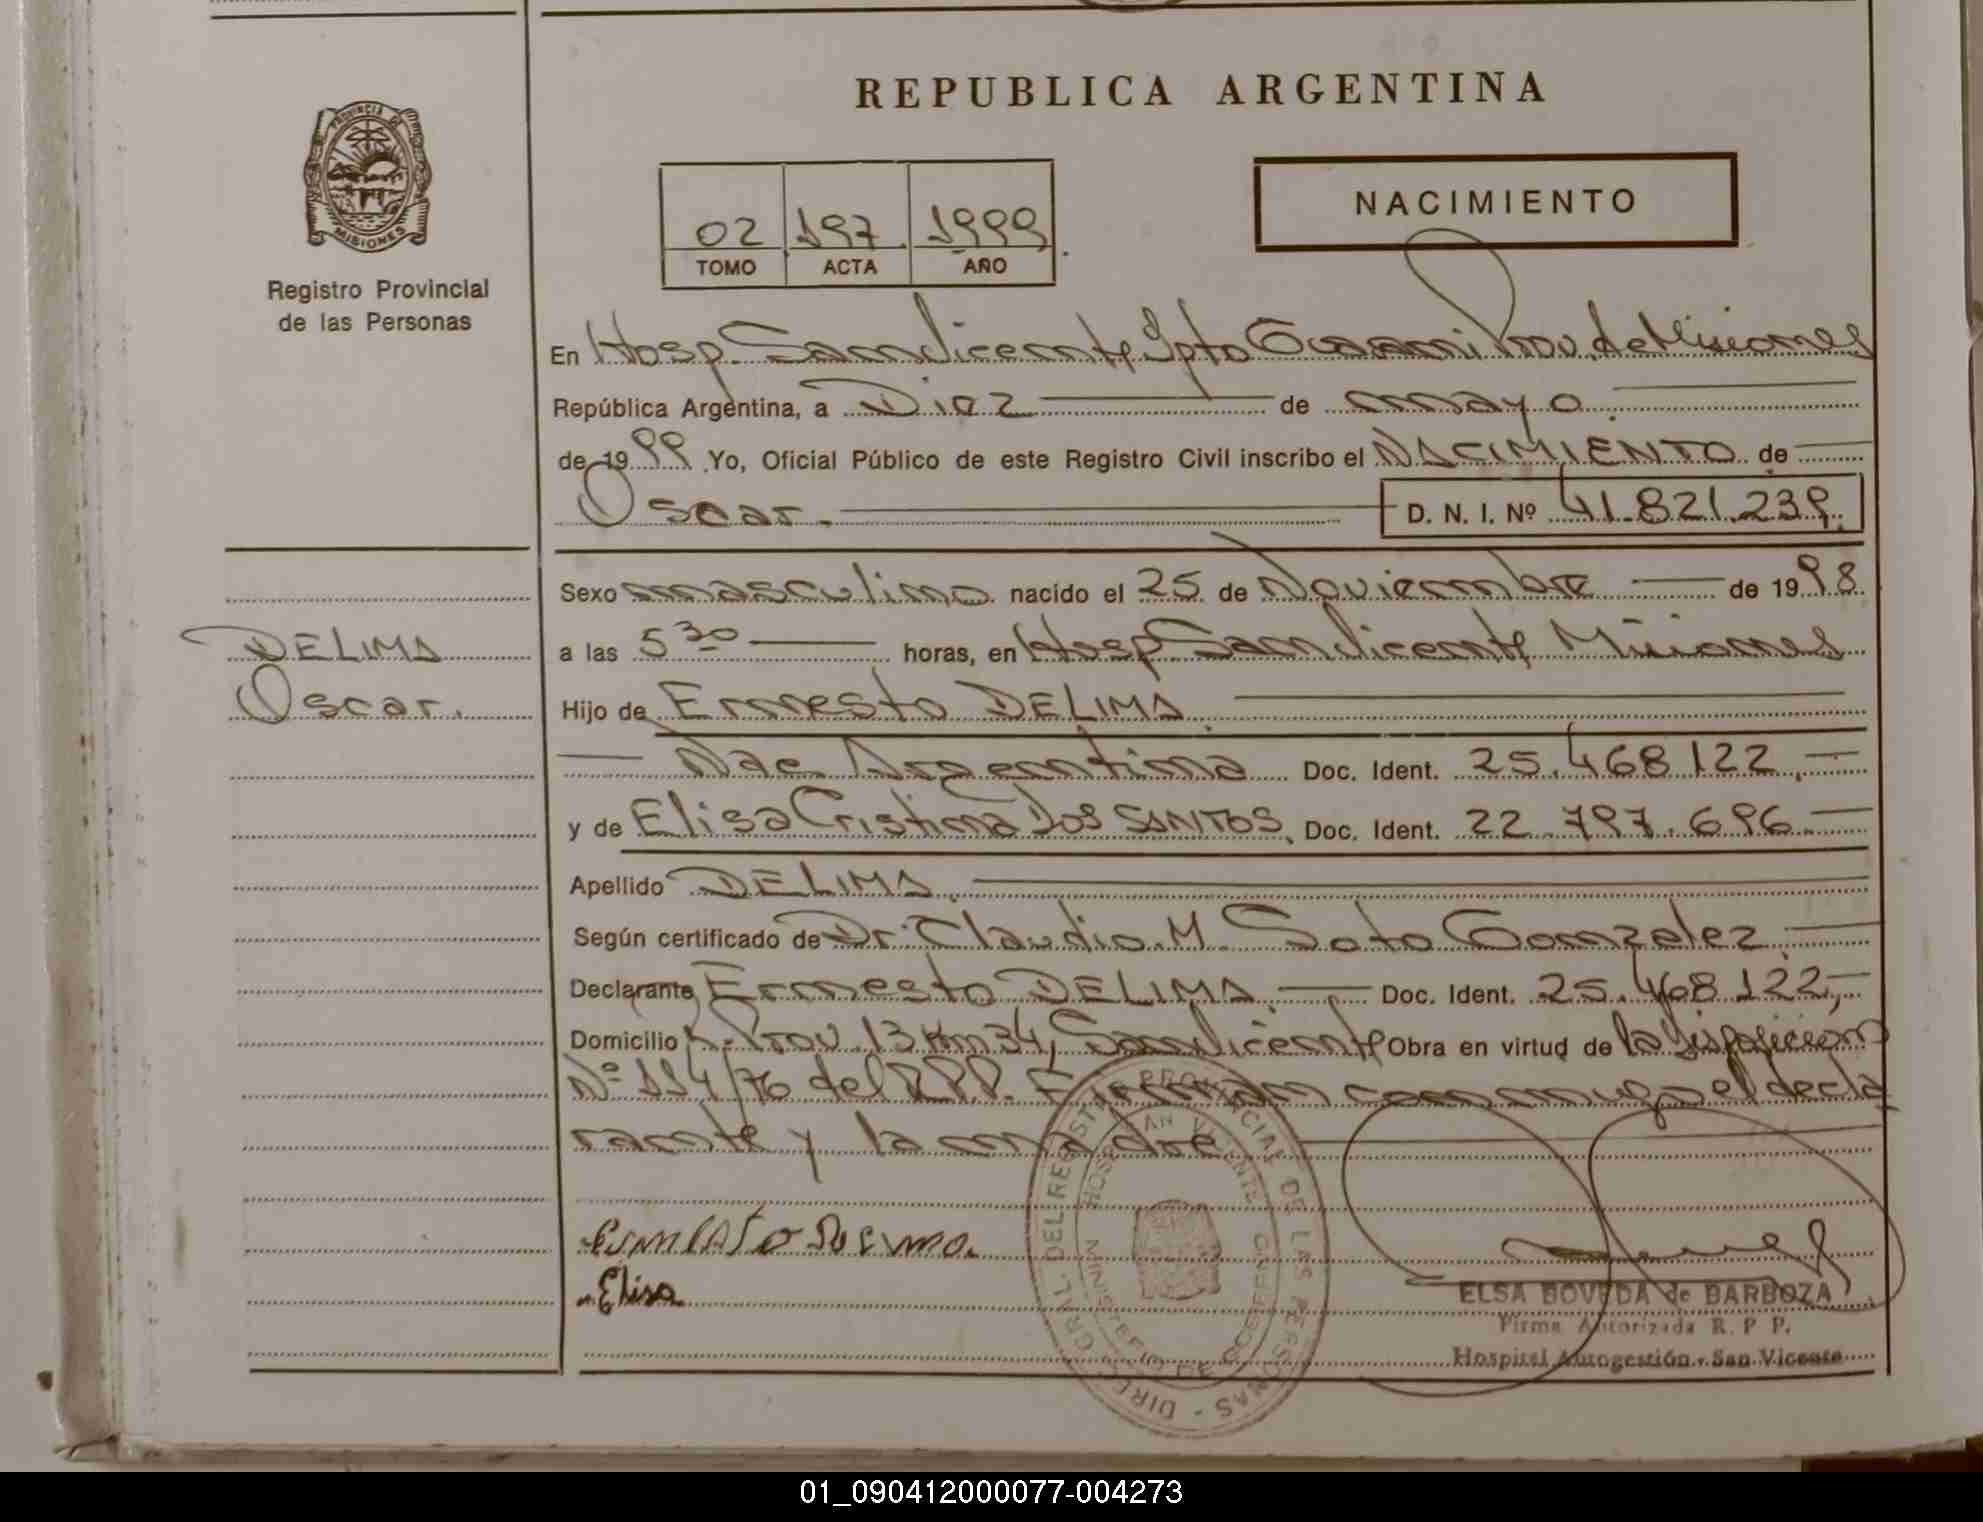 REPUBLICA ARGENTINA
PROVINCIA DE MISIONES
Registro Provincial
de las Personas
NACIMIENTO
02 197 1999
TOMO ACTA AÑO
En Hosp. San Vicente Dpto Guarani Prov. de Misiones
República Argentina, a Diez de mayo
de 1999 Yo, Oficial Público de este Registro Civil inscribo el NACIMIENTO de
Oscar. D. N. I. Nº 41.821.239.
Sexo masculino nacido el 25 de Noviembre de 1998
DELIMA
Oscar.
a las 5 30 horas, en Hosp San Vicente Misiones
Hijo de Ernesto DELIMA
Nac. Argentina Doc. Ident. 25.468.122.
y de Elisa Cristina DOS SANTOS, Doc. Ident. 22.797.696
Apellido DELIMA
Según certificado de Dr. Claudio M. Soto Gonzalez
Declarante Ernesto DELIMA Doc. Ident. 25.468.122,
Domicilio R. Prov. 13 Km 34, San Vicente Obra en virtud de la Disposicion
Nº 114/76 del R.P.P. Firman conmigo el decla
rante y la madre
Elisa
DIREC. GRAL. DEL REGISTRO PROVINCIAL DE LAS PERSONAS
HOSP. SAN VICENTE
MINISTERIO DE GOBIERNO
ELSA BOVEDA de BARBOZA
Firma Autorizada R. P. P.
Hospital Autogestión - San Vicente
01_090412000077-004273